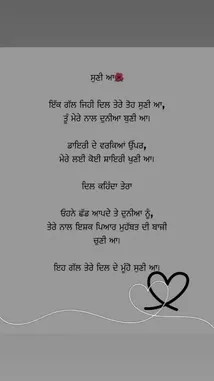 ਸੁਣੀ ਆ🌺
ਇੱਕ ਗੱਲ ਜਿਹੀ ਦਿਲ ਤੇਰੇ ਤੋਹ ਸੁਣੀ ਆ,
ਤੂੰ ਮੇਰੇ ਨਾਲ ਦੁਨੀਆ ਬੁਣੀ ਆ।
ਡਾਇਰੀ ਦੇ ਵਰਕਿਆਂ ਉੱਪਰ,
ਮੇਰੇ ਲਈ ਕੋਈ ਸ਼ਾਇਰੀ ਖੁਣੀ ਆ।
ਦਿਲ ਕਹਿੰਦਾ ਤੇਰਾ
ਓਹਨੇ ਛੱਡ ਆਪਦੇ ਤੇ ਦੁਨੀਆ ਨੂੰ,
ਤੇਰੇ ਨਾਲ ਇਸ਼ਕ ਪਿਆਰ ਮੁਹੱਬਤ ਦੀ ਬਾਜ਼ੀ
ਚੁਣੀ ਆ।
ਇਹ ਗੱਲ ਤੇਰੇ ਦਿਲ ਦੇ ਮੂੰਹੋਂ ਸੁਣੀ ਆ।